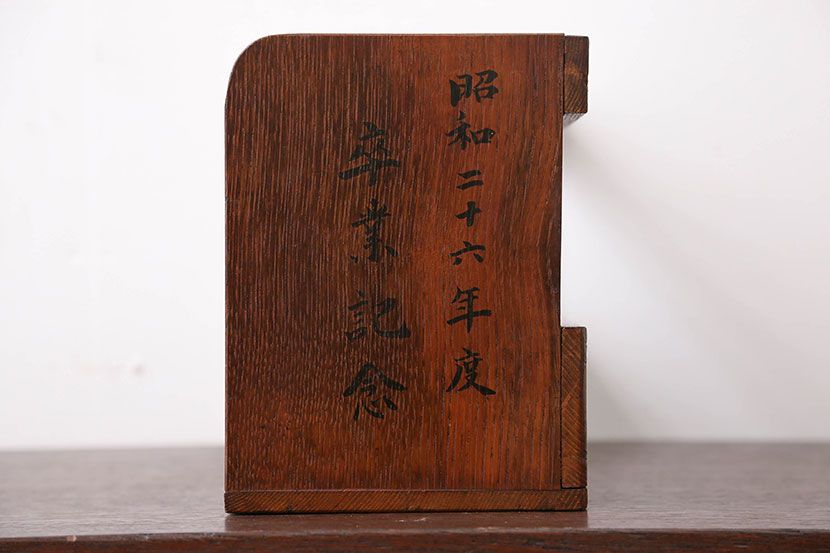 昭和二十六年度
卒業記念